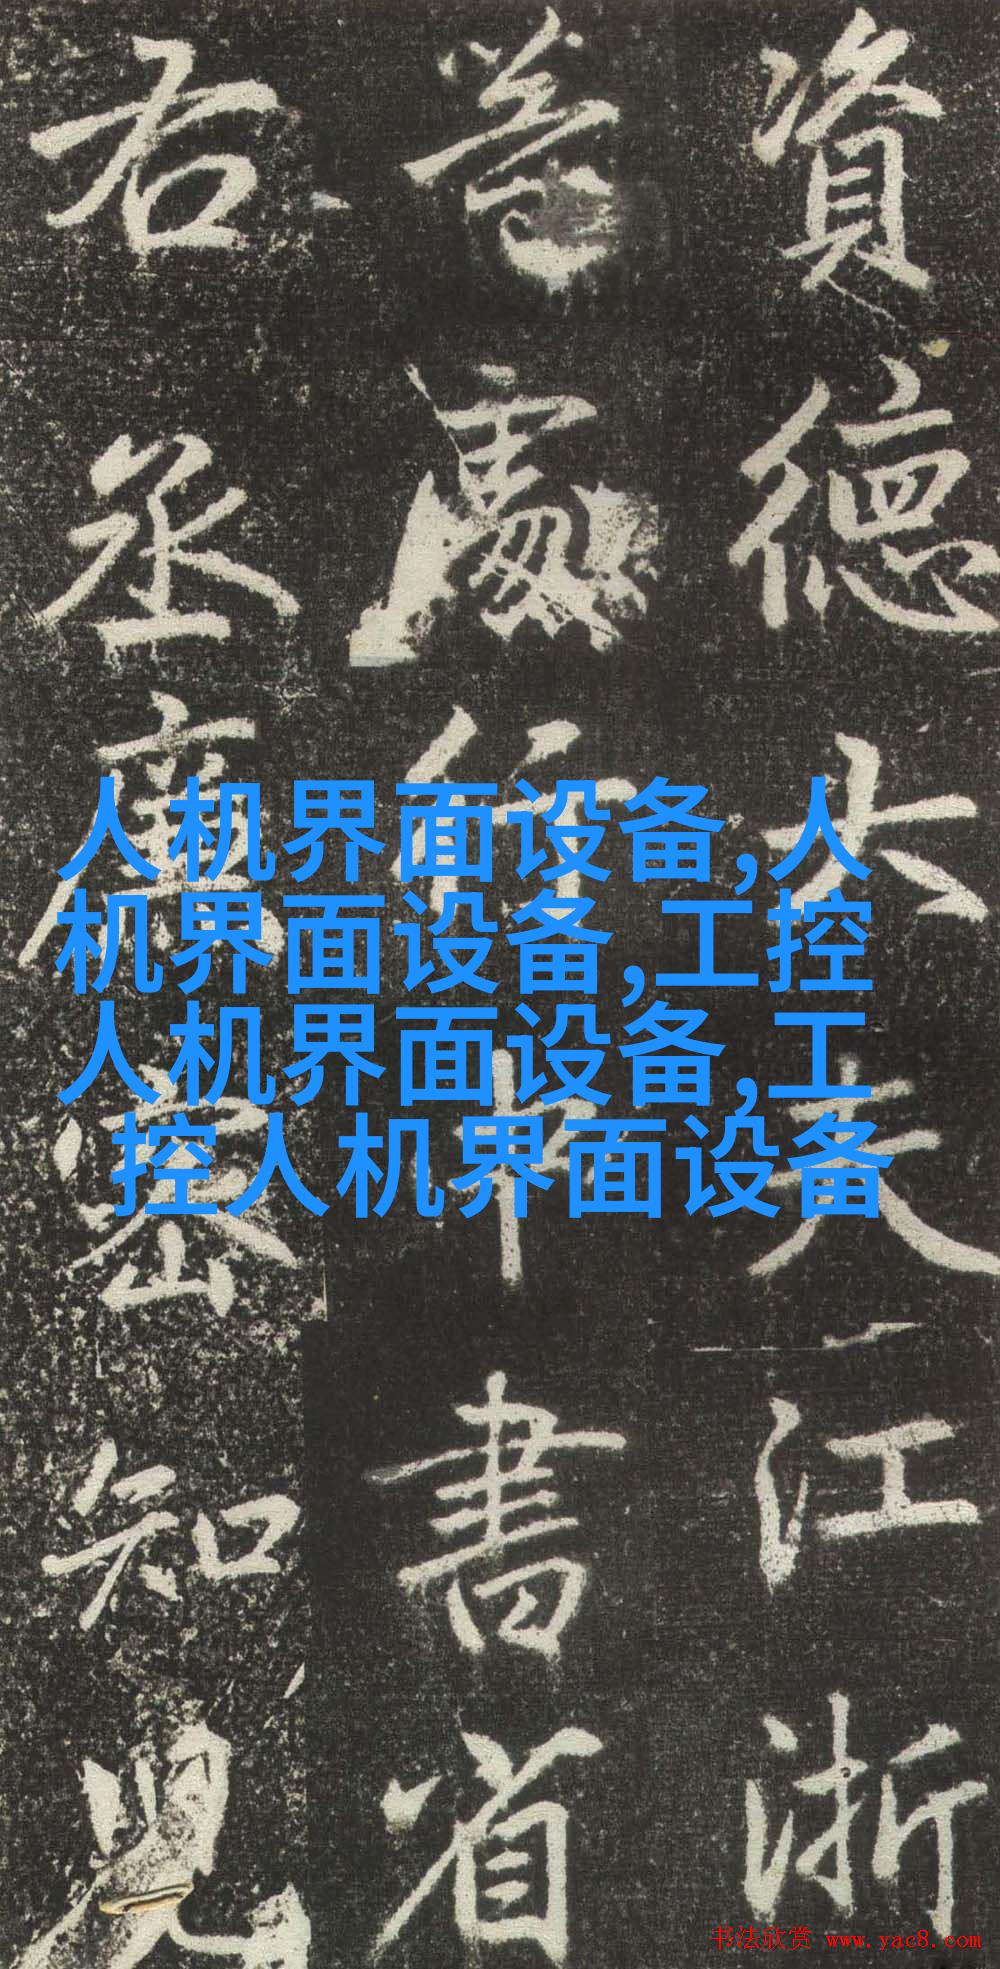 資德大夫江浙
等處行中書省
右丞廉密知兒
人机界面设备,人
机界面设备,工控
人机界面设备,工
控人机界面设备
书法欣赏 www.yac8.com